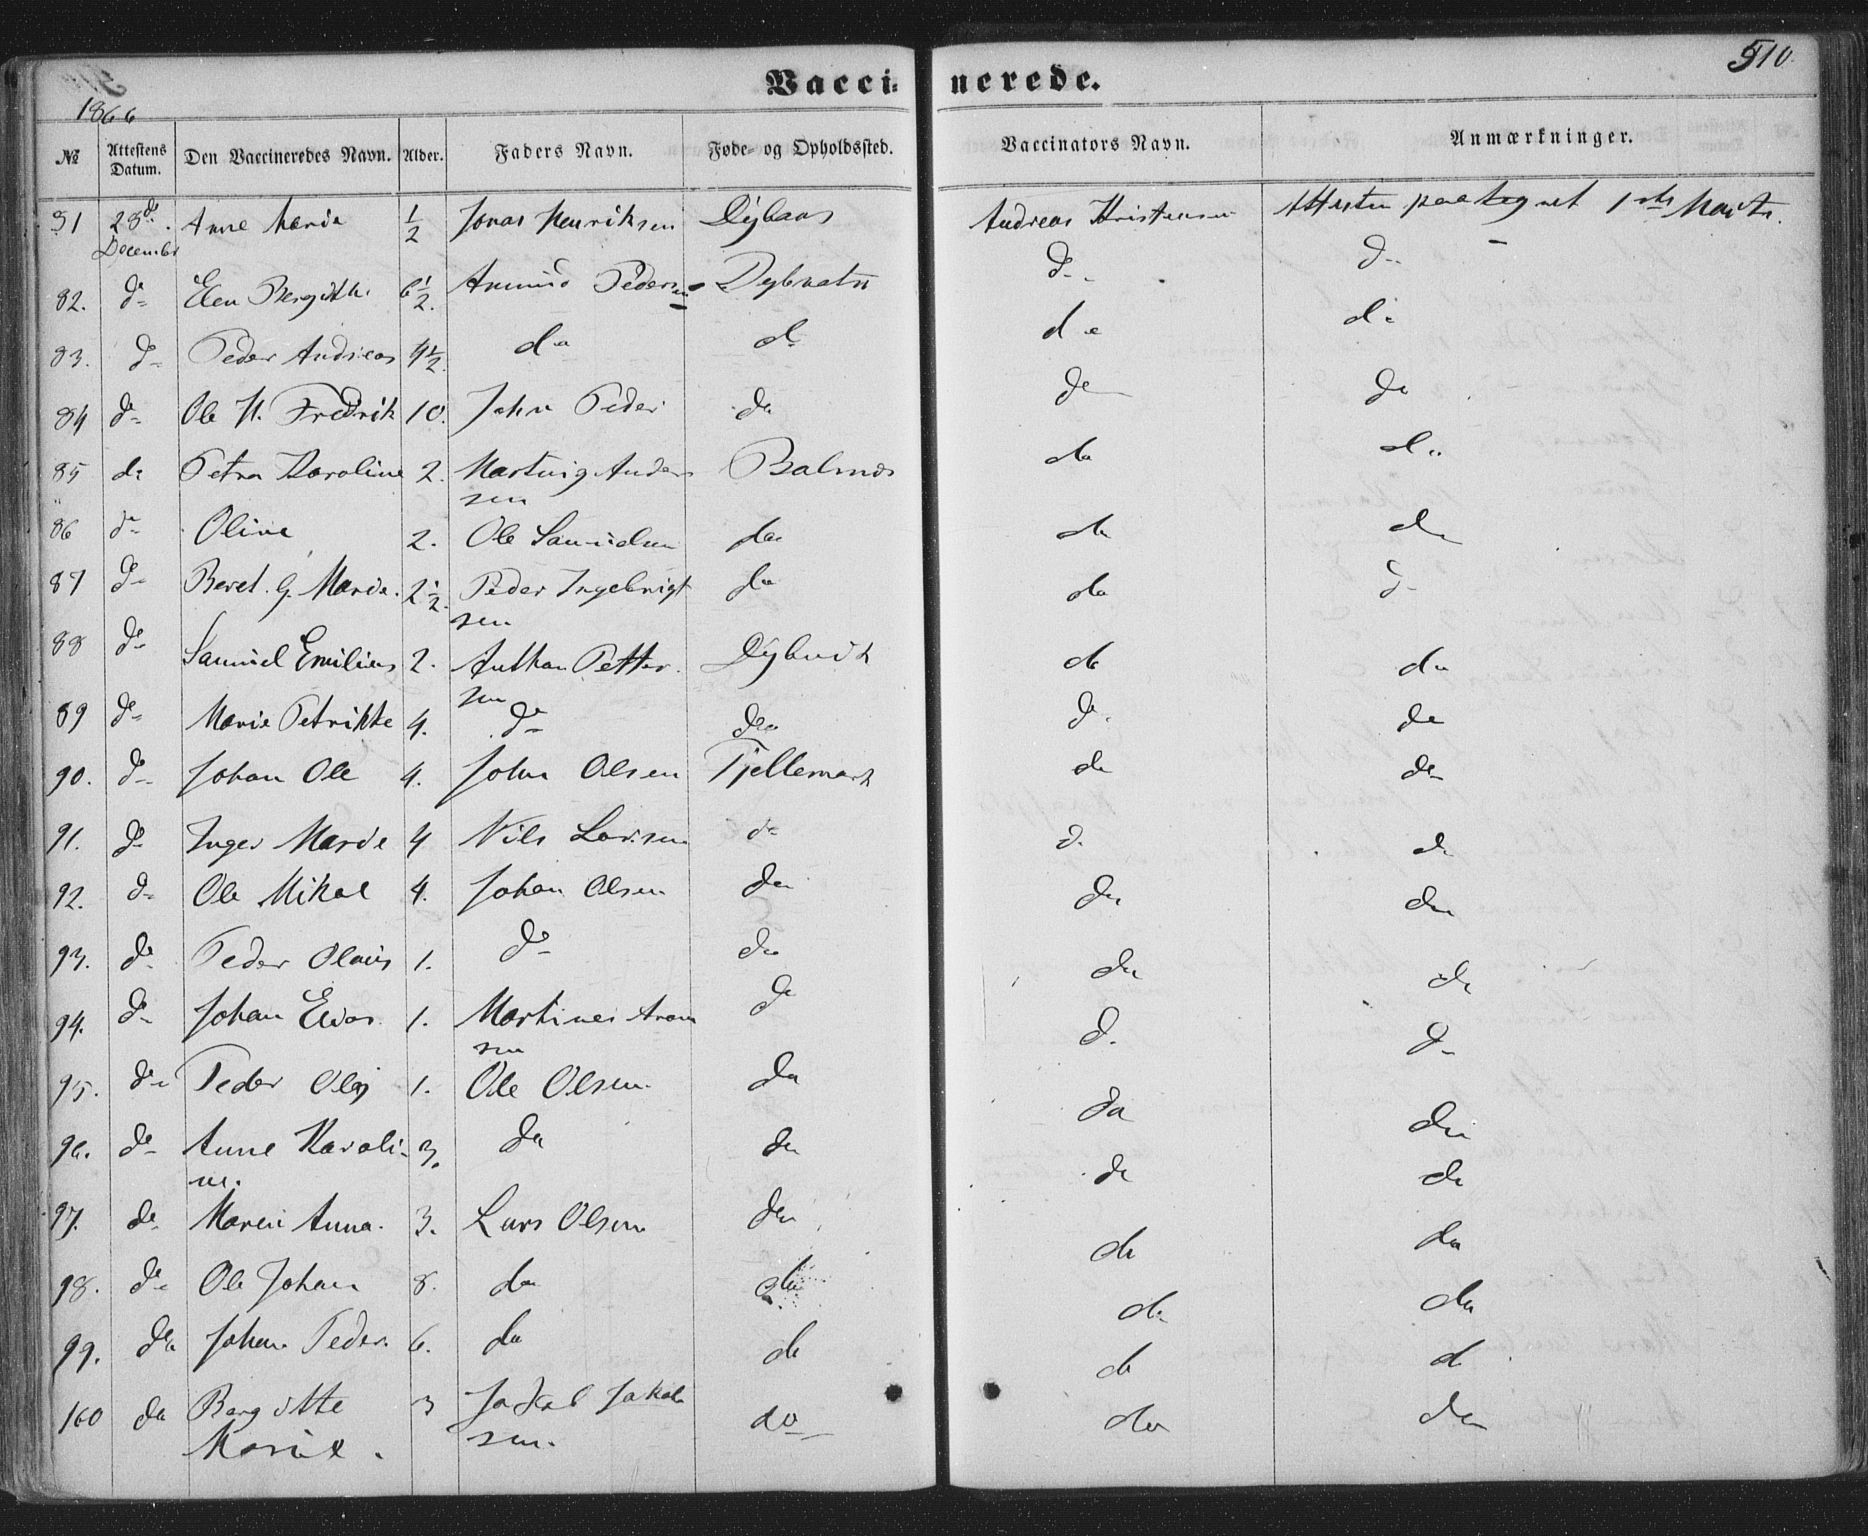 510.
Vaccinerede.
1866
№ Attestens Datum. Den Vaccineredes Navn. Alder. Faders Navn. Føde- og Opholdssted. Vaccinators Navn. Anmærkninger.
81 28de December Anne Maria 1/2 Jonas Henriksen Dybaas Andreas Kristensen Attesten paategnet 1ste Marts.
82. do Elen Bergitth. 6 1/2. Amund Pedersen Dybvatn do do
83. do Peder Andreas 4 1/2. do do do do
84 do Ole H. Fredrik 10. John Peder do do do
85 do Petra Karoline 2. Hartvig Andersen Balnes do do
86 do Oline 2. Ole Samuelsen do do do
87 do Beret. G. Marie. 2 1/2. Peder Ingebrigtsen do do do
88 do Samuel Emilius 2. Anthon Pettersen Dybvik do do
89 do Marie Petrikke 4. do do do do
90. do Johan Ole 4. John Olsen Tjellemark do do
91. do Inger Marie 4 Nils Larsen do do do
92. do Ole Mikal 4. Johan Olsen do do do
93. do Peder Olaus 1. do do do do
94. do Johan 1. Martines Aronsen do do do
95. do Peder Olaj 1. Ole Olsen. do do do
96. do Anne Karoline. 3. do do do do
97. do Maren Anna. 3. Lars Olsen do do do
98. do Ole Johan 8. do do do do
99. do Johan Peder. 6. do do do do
100 do Bergitte Marie. 3 Jakob Jakobsen. do do do